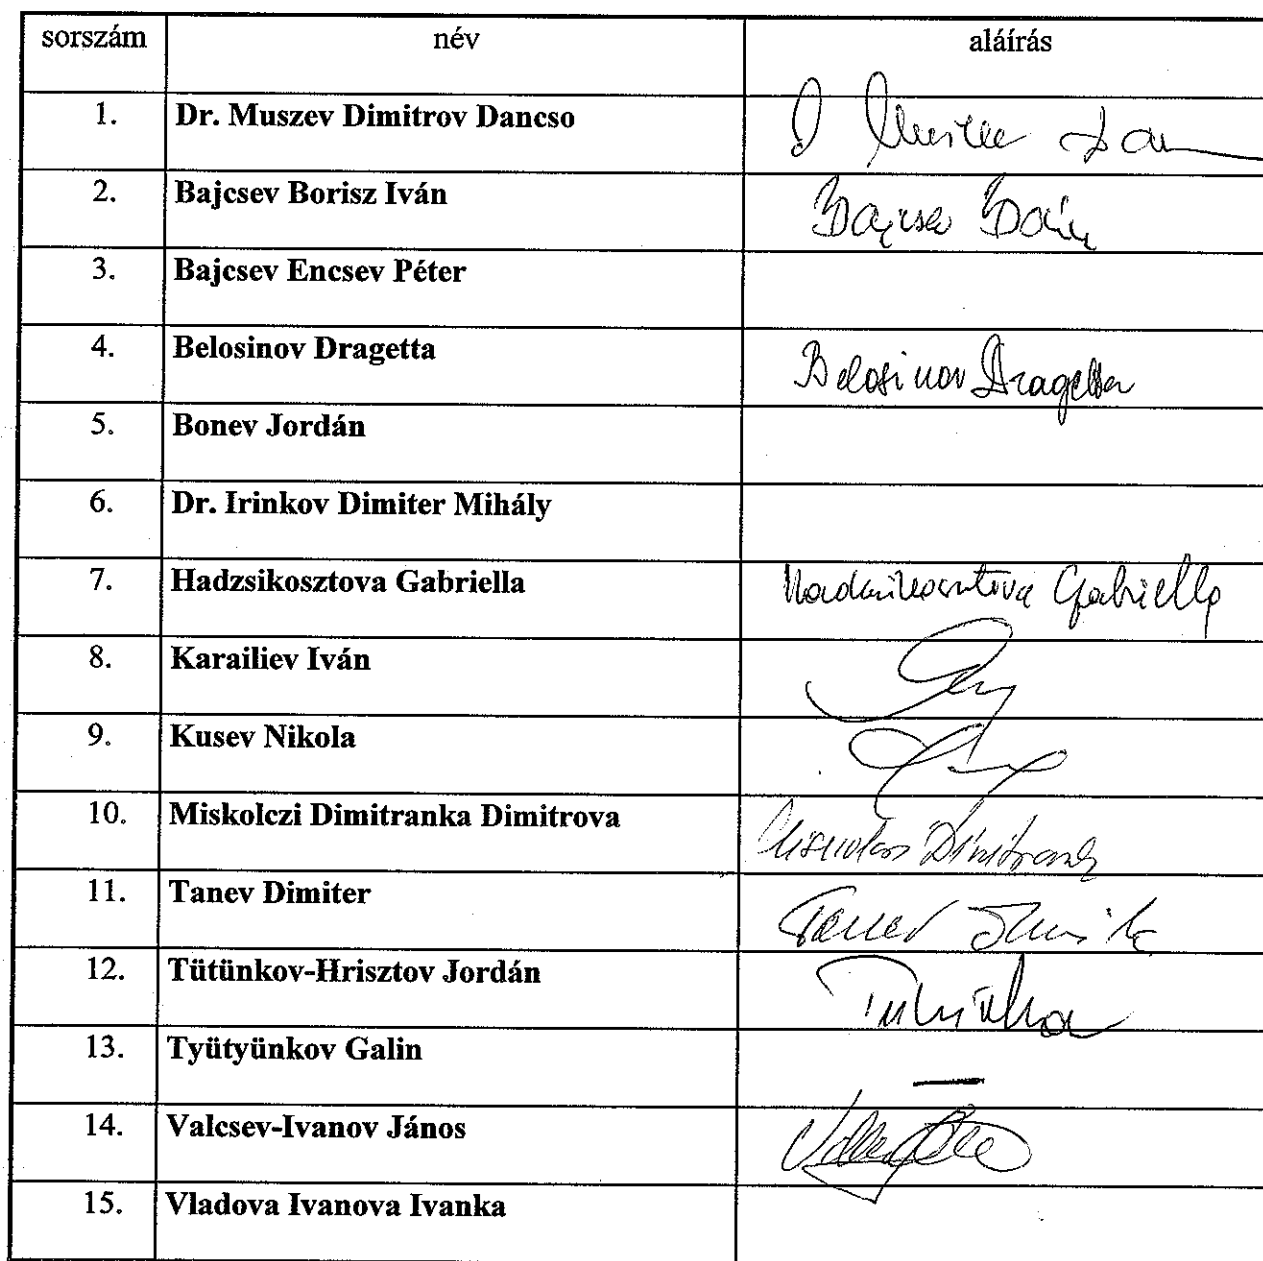 sorszám név aláírás
1. Dr. Muszev Dimitrov Dancso
2. Bajcsev Borisz Iván Bajcsev
3. Bajcsev Encsev Péter
4. Belosinov Dragetta Belosinov Dragetta
5. Bonev Jordán
6. Dr. Irinkov Dimiter Mihály
7. Hadzsikosztova Gabriella Hadzsikosztova Gabriella
8. Karailiev Iván
9. Kusev Nikola
10. Miskolczi Dimitranka Dimitrova
11. Tanev Dimiter Tanev
12. Tütünkov-Hrisztov Jordán
13. Tyütyünkov Galin —
14. Valcsev-Ivanov János
15. Vladova Ivanova Ivanka